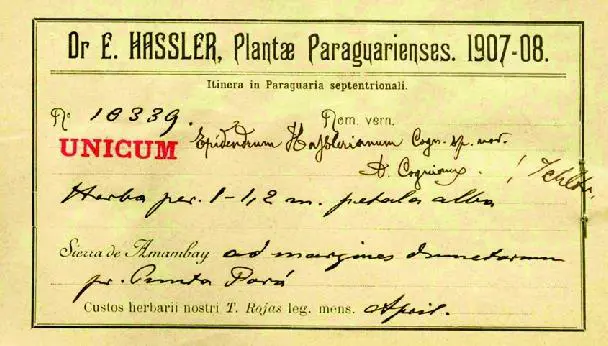 Dr E. HASSLER, Plantæ Paraguarienses. 1907-08.
Itinera in Paraguaria septentrionali.
No 10339. Nom. vern.
UNICUM Epidendrum Hasslerianum Cogn. sp. nov.
A. Cogniaux !
Herba per. 1-1,2 m. petala alba
Sierra de Amambay ad margines dumetorum
pr. Punta Porá
Custos herbarii nostri T. Rojas leg. mens. April.